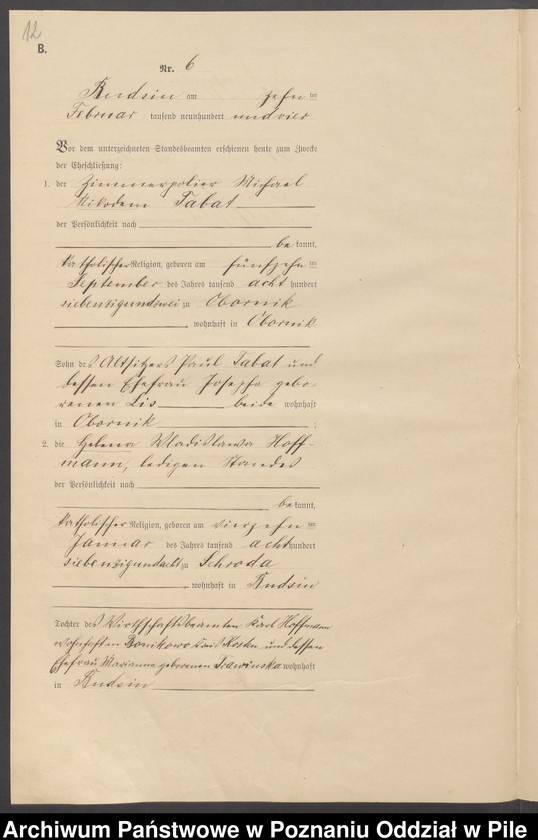 12
B.
Nr. 6
Rudsin am zehnten
Februar tausend neunhundert und vier
Vor dem unterzeichneten Standesbeamten erschienen heute zum Zwecke
der Eheschließung:
1. der Zimmerpolier Michael
Nikodem Tabat
der Persönlichkeit nach
be kannt,
katholischer Religion, geboren am fünfzehnten
September des Jahres tausend acht hundert
siebenzigundzwei zu Obornik
, wohnhaft in Obornik
Sohn des Altsitzers Paul Tabat und
dessen Ehefrau Josepha gebo-
renen Lis beide wohnhaft
in Obornik ;
2. die Helena Wladislawa Hoff-
mann, ledigen Standes
der Persönlichkeit nach
be kannt,
katholischer Religion, geboren am vierzehnten
Januar des Jahres tausend acht hundert
siebenzigundacht zu Schroda
, wohnhaft in Rudsin
Tochter des Wirthschaftsbeamten Karl Hoffmann
wohnhaft in Bonikowo Kreis Kosten und dessen
Ehefrau Marianna geborenen Trawinska wohnhaft
in Rudsin
Archiwum Państwowe w Poznaniu Oddział w Pile